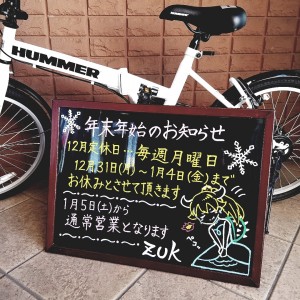 HUMMER
年末年始のお知らせ
12月定休日…毎週月曜日
12月31日(月)～1月4日(金)まで
お休みとさせて頂きます
1月5日(土)から
通常営業となります
ZUK
ペコ